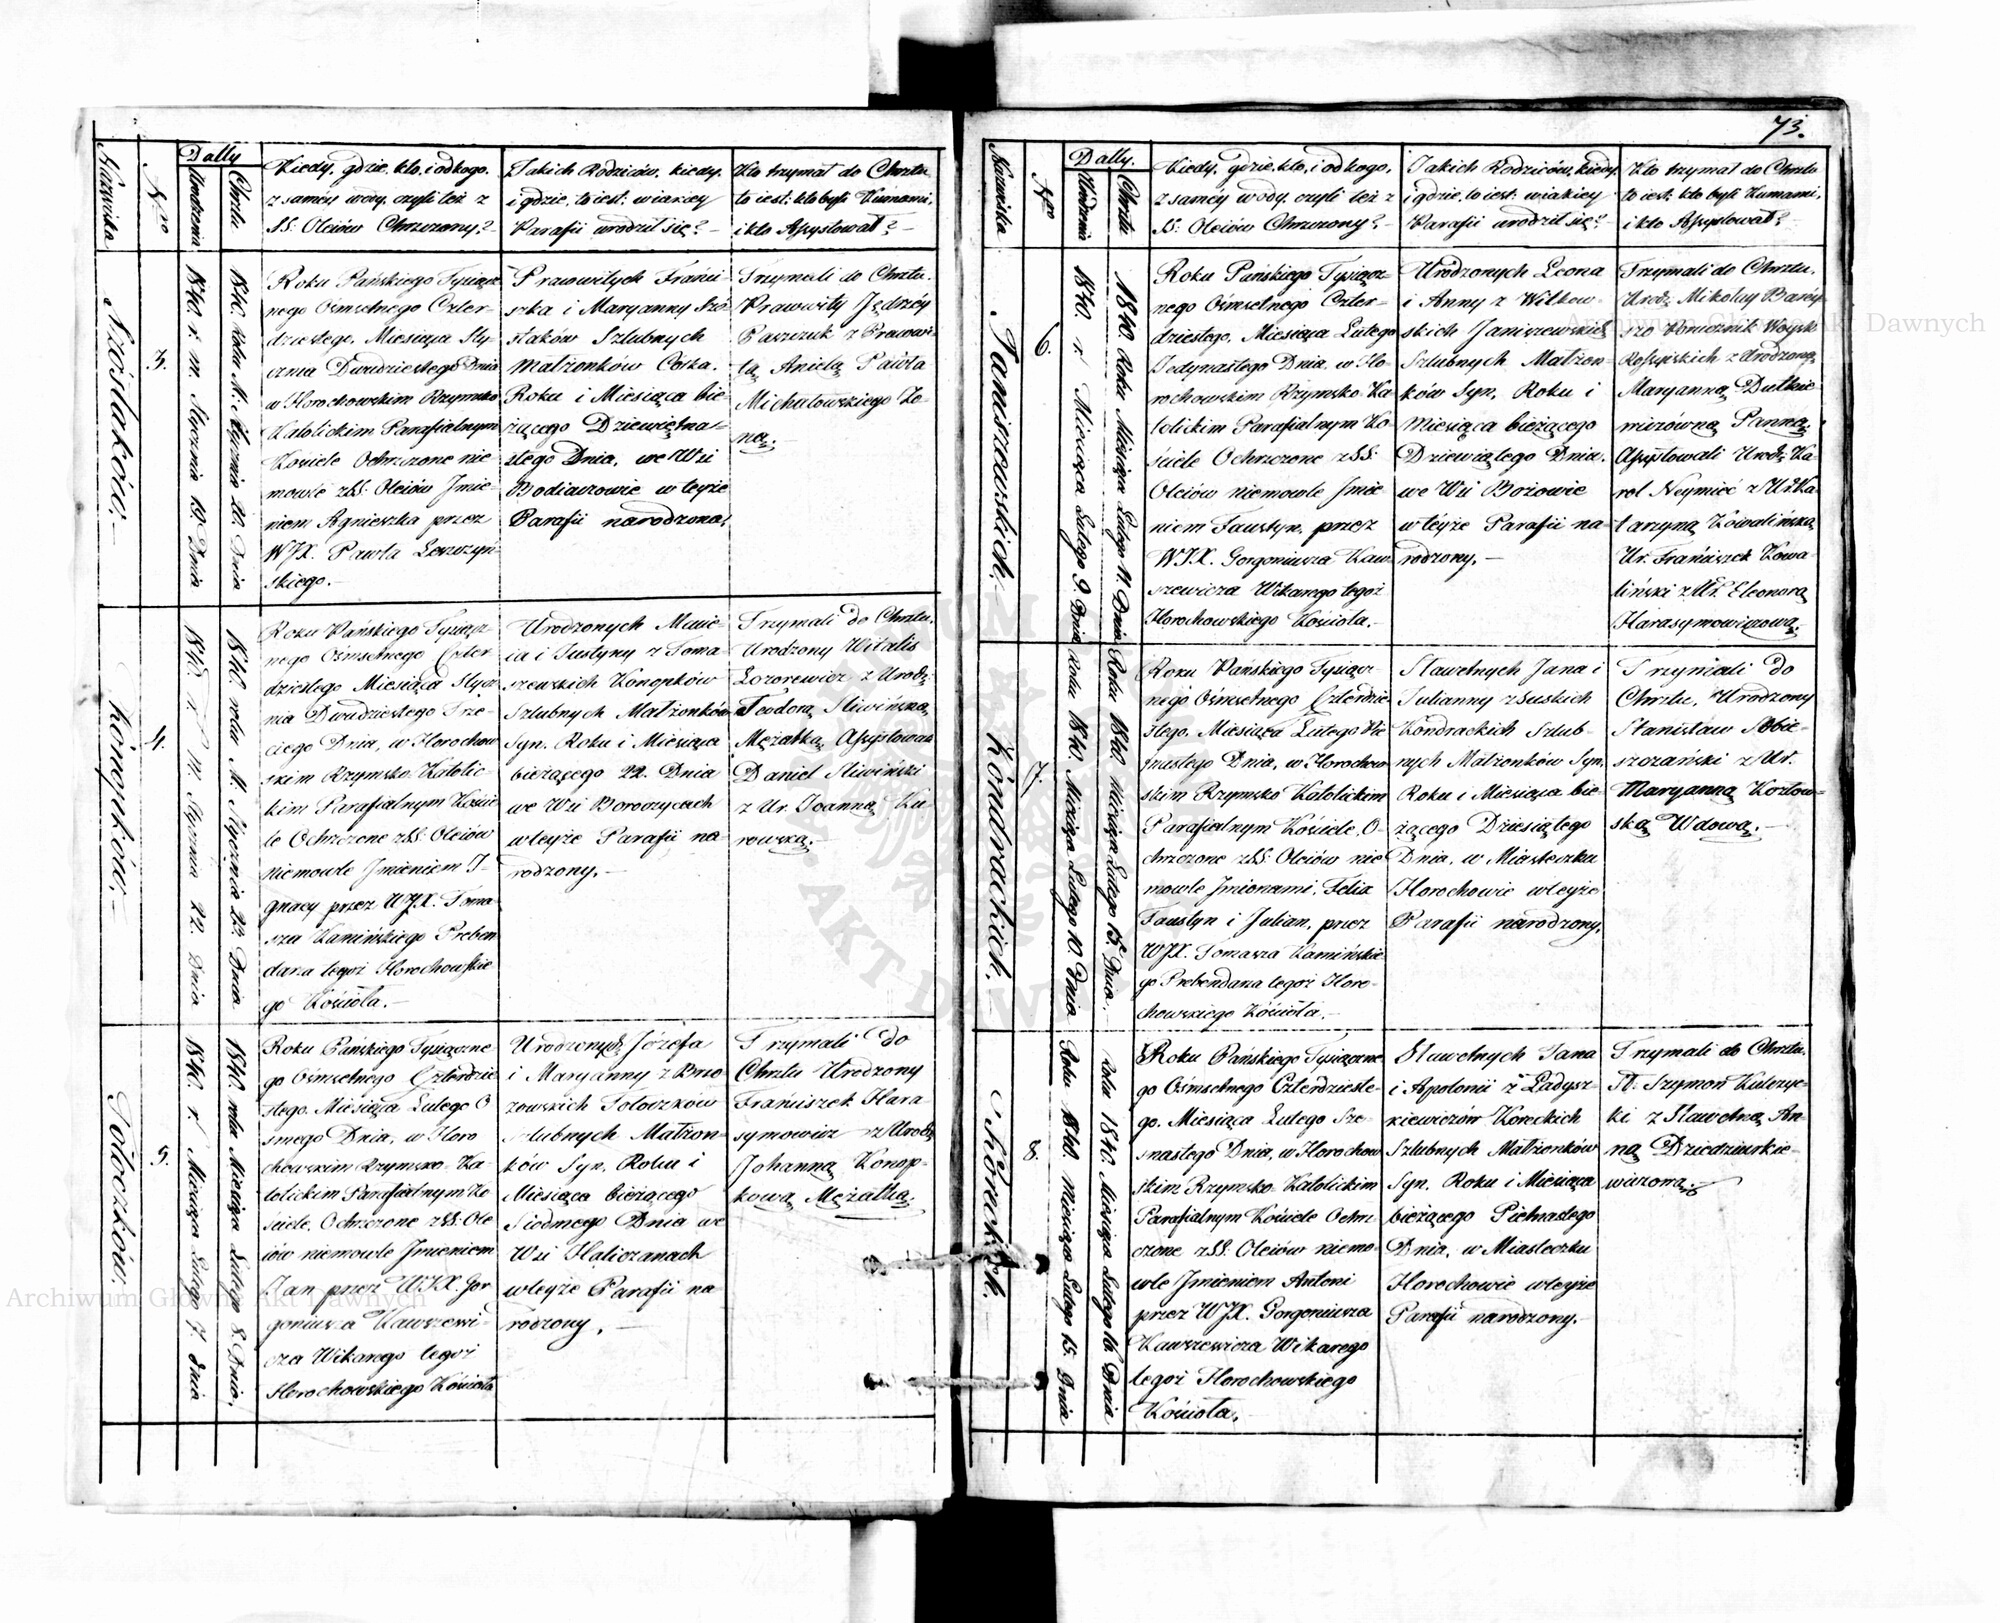 73.
Nazwiska
Nro
Datty
Urodzenia
Chrztu
Kiedy, gdzie, kto, i od kogo,
z samey wody, czyli też z
SS: Oleiów Chrzczony? –
Z Jakich Rodziców, kiedy,
i gdzie, to iest: w iakiey
Parafii urodził się? –
Kto trzymał do Chrztu
to iest: kto byli Kumami,
i kto Assystował? –
Szóstaków.
3.
1840. r. m. Stycznia 19. Dnia
1840. Roku M. Stycznia 20. Dnia
Roku Pańskiego Tysiącz-
nego Ośmsetnego Czter-
dziestego, Miesiąca Sty-
cznia Dwudziestego Dnia
w Horochowskim Rzymsko
Katolickim Parafialnym
Kościele Ochrzczone nie-
mowle z SS: Oleiów Jmie-
niem Agnieszka przez
WJX. Pawła
skiego. –
Prawowitych Franci-
szka i Maryanny Szó-
staków Szlubnych
Małżonków Córka.
Roku i Miesiąca bie-
żącego Dziewiętna-
stego Dnia, we Wsi
w teyże
Parafii narodzona.
Trzymali do Chrztu.
Prawowity Jędrzéy
Paszczuk z Prawowi-
tą Anielą Pawła
Michałowskiego Żo-
ną. –
Konopków. –
4.
1840. r. m. Stycznia 22. Dnia
1840. roku M. Stycznia 23. Dnia
Roku Pańskiego Tysiącz-
nego Ośmsetnego Czter
dziestego Miesiąca Stycz
nia Dwudziestego Trze-
ciego Dnia, w Horochow
skim Rzymsko Katolic-
kim Parafialnym Koście
le Ochrzczone z SS: Oleiów
niemowle Jmieniem I-
gnacy przez WJX. Toma-
sza Kamińskiego Preben
darza tegoż Horochowskie
go Kościoła. –
Urodzonych Macie-
ia i Justyny z Toma
szewskich Konopków
Szlubnych Małżonków
Syn. Roku i Miesiąca
bieżącego 22. Dnia
we Wsi Boroczycach
w teyże Parafii na
rodzony. –
Trzymali do Chrztu.
Urodzony Witalis
z Urodz:
Teodorą Sliwińską,
Mężatką, Assystowali
Daniel Sliwiński
z Ur. Joanną Ku
rowską. –
Tołoczków.
5.
1840. r. Miesiąca Lutego 7. dnia
1840. roku Miesiąca Lutego 8. Dnia.
Roku Pańskiego Tysiączne
go Ośmsetnego Czterdzie
stego. Miesiąca Lutego O
smego Dnia, w Horo
chowskim Rzymsko- Ka-
tolickim Parafialnym Ko
ściele, Ochrzczone z SS: Ole
iów niemowle Jmieniem
Jan przez WJX. Gor
goniusza Kawszewi-
cza Wikarego tegoż
Horochowskiego Kościoła
Urodzonych Józefa
i Maryanny z Brzo
zowskich Tołoczków
Szlubnych Małżon-
ków Syn, Roku i
Miesiąca bieżącego
Siódmego Dnia we
Wsi Haliczanach
w teyże Parafii na
rodzony. –
Trzymali do
Chrztu Urodzony
Franciszek Hara
symowicz z Urodz:
Johanną Konop-
kową Mężatką.
Nazwiska
Nro
Datty.
Urodzenia
Chrztu
Kiedy, gdzie, kto, i od kogo,
z samey wody, czyli też z
SS: Oleiów Chrzczony? –
Z Jakich Rodziców, kiedy,
i gdzie, to iest: w iakiey
Parafii urodził się? –
Kto trzymał do Chrztu
to iest: kto byli Kumami,
i kto Assystował? –
Janiszewskich. –
6.
1840. r. Miesiąca Lutego 9. Dnia
1840. Roku Miesiąca Lutego 11. Dnia
Roku Pańskiego Tysiącz-
nego Ośmsetnego Czter-
dziestego, Miesiąca Lutego
Jedynastego Dnia, w Ho-
rochowskim Rzymsko Ka-
tolickim Parafialnym Ko-
ściele Ochrzczone z SS:
Oleiów niemowle Jmie
niem Faustyn, przez
WJX. Gorgoniusza Kaw-
szewicza Wikarego tegoż
Horochowskiego Kościoła. –
Urodzonych Leona
i Anny z Witkow-
skich Janiszewskich
Szlubnych Małżon-
ków Syn, Roku i
Miesiąca bieżącego
Dziewiątego Dnia.
we Wsi Bożowie
w téyże Parafii na-
rodzony. –
Trzymali do Chrztu.
Urodz: Mikołay
Woysk
Rossyiskich z Urodzoną
Maryanną Dutkie
wiczówną Panną.
Assystowali Urodz: Ka
rol Neymieć z Ur: Ka
tarzyną Kowalińską
Ur. Franciszek Kowa-
liński z Ur. Eleonorą
Harasymowiczową.
Kondrackich. –
7.
Roku 1840. Miesiąca Lutego 10. Dnia
Roku 1840. Miesiąca Lutego 15. Dnia.
Roku Pańskiego Tysiącz-
nego Ośmsetnego Czterdzie
stego, Miesiąca Lutego Pię
tnastego Dnia, w Horochow
skim Rzymsko Katolickim
Parafialnym Kościele, O-
chrzczone z SS: Oleiów nie
mowle Jmionami, Felix
Faustyn i Julian, przez
WJX. Tomasza Kamińskie
go Prebendarza tegoż Horo-
chowskiego Kościoła. –
Sławetnych Jana i
Julianny z Suskich
Kondrackich Szlub-
nych Małżonków Syn,
Roku i Miesiąca bie-
żącego Dziesiątego
Dnia, w Miasteczku
Horochowie w teyże
Parafii narodzony.
Trzymali do
Chrztu, Urodzony
Stanisław Sobie-
szczański z Ur.
Maryanną Kozłow-
ską Wdową. –
Koreckich.
8.
Roku 1840. Miesiąca Lutego 15. Dnia
Roku 1840. Miesiąca Lutego 16 Dnia
Roku Pańskiego Tysiączne
go Ośmsetnego Czterdzieste-
go, Miesiąca Lutego Sze-
snastego Dnia, w Horochow
skim Rzymsko- Katolickim
Parafialnym Kościele Ochrz
czone z SS: Oleiów niemo-
wle Jmieniem Antoni
przez WJX. Gorgoniusza
Kawszewicza Wikarego
tegoż Horochowskiego
Kościoła. –
Sławetnych Jana
i Apolonii z Ładysz
kiewiczów Koreckich
Szlubnych Małżonków
Syn, Roku i Miesiąca
bieżącego Pietnastego
Dnia, w Miasteczku
Horochowie w teyże
Parafii narodzony. –
Trzymali do Chrztu.
Sł: Szymon Kulczyc-
ki z Sławetną An-
ną Dziedziuskie-
wiczową.
Archiwum Główne Akt Dawnych
Archiwum Główne Akt Dawnych